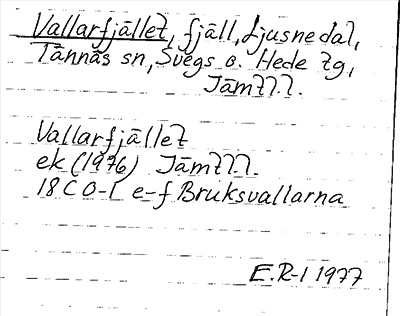 Vallarfjället, fjäll, Ljusnedal,
Tännäs sn, Svegs o. Hede tg,
Jämtl.l.
Vallarfjället
ek (1976) Jämtl.l.
18 C 0-1 e-f Bruksvallarna
E.R-l 1977